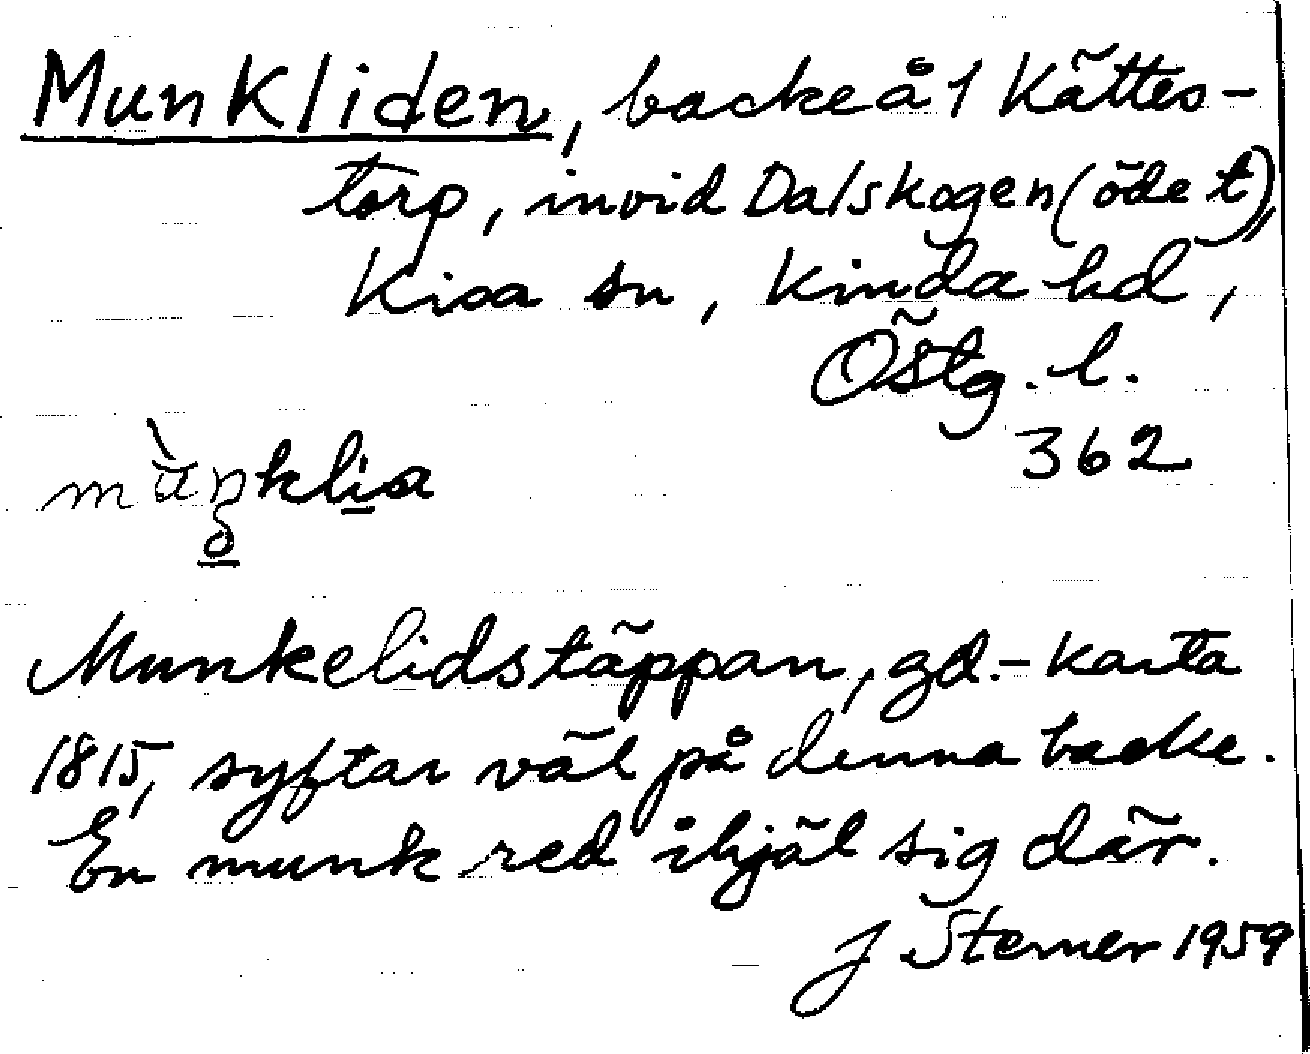 Munkliden, backe å 1 Kättes-
torp, invid Dalskogen (öde t),
Kisa sn, Kinda hd,
Östg. l.
362
mùŋklia
Munkelidstäppan, gd.-karta
1815, syftar väl på denna backe.
En munk red ihjäl sig där.
J Sterner 1959